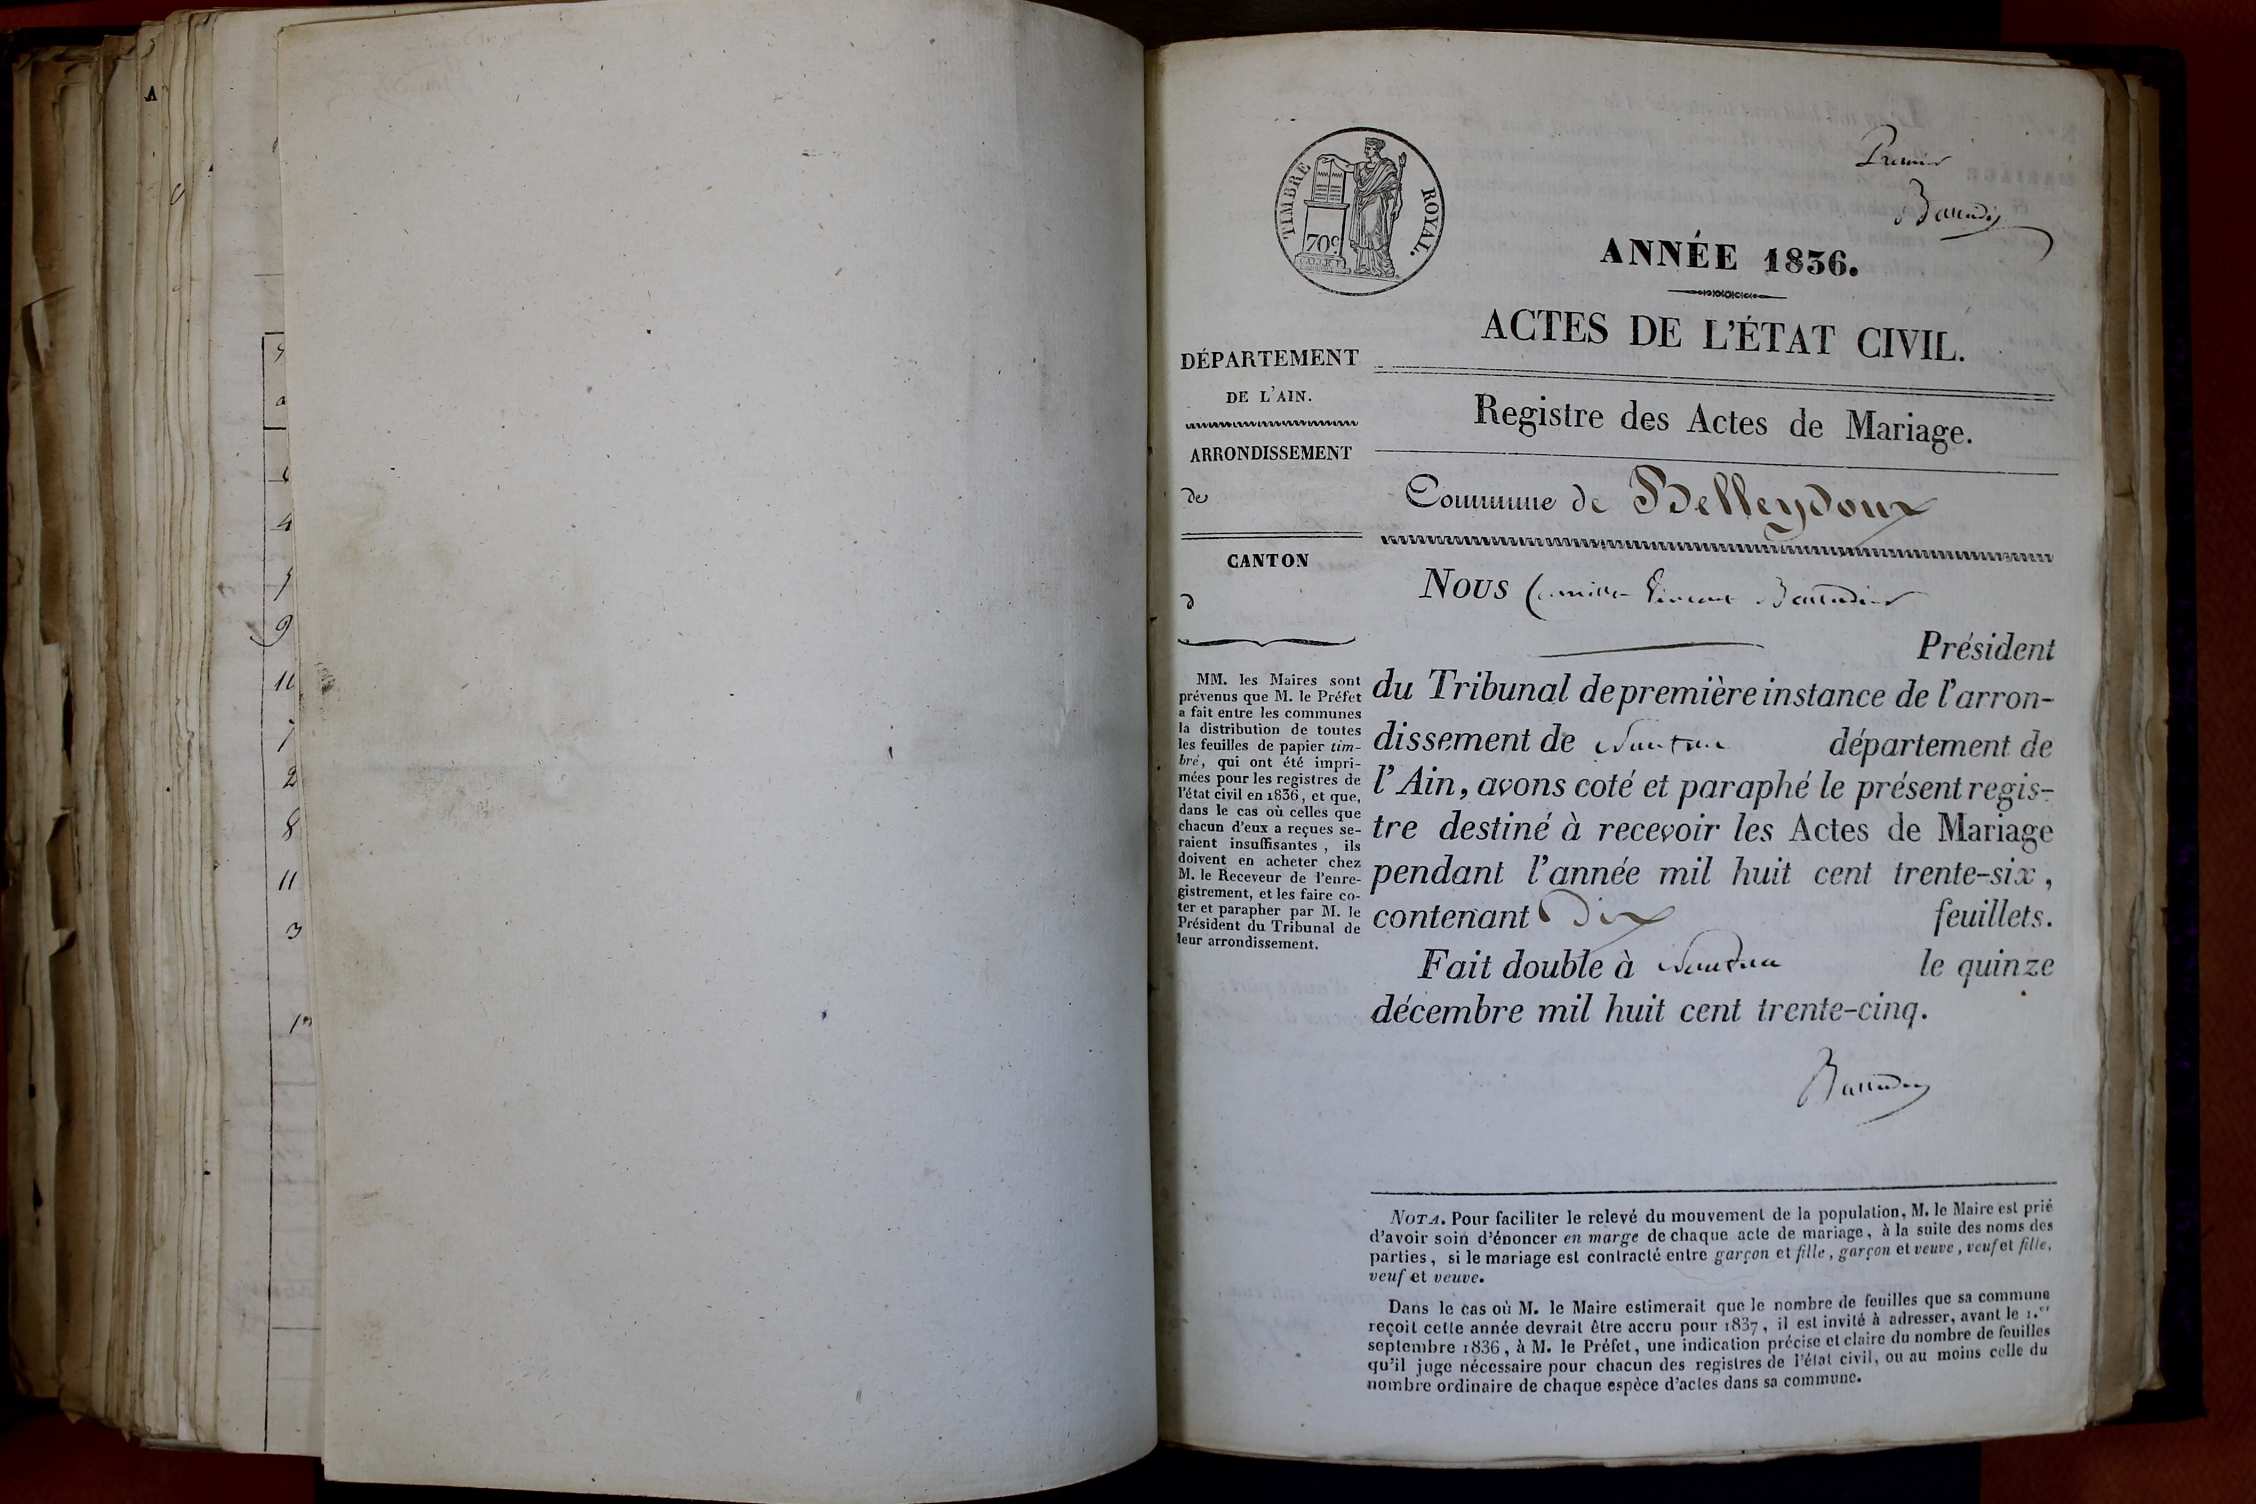 A
9
10
7
2
8
11
3
TIMBRE ROYAL.
70c
Premier
ANNÉE 1836.
ACTES DE L'ÉTAT CIVIL.
DÉPARTEMENT
DE L'AIN.
ARRONDISSEMENT
de
CANTON
d
MM. les Maires sont
prévenus que M. le Préfet
a fait entre les communes
la distribution de toutes
les feuilles de papier tim-
bré, qui ont été impri-
mées pour les registres de
l'état civil en 1836, et que,
dans le cas où celles que
chacun d'eux a reçues se-
raient insuffisantes, ils
doivent en acheter chez
M. le Receveur de l'enre-
gistrement, et les faire co-
ter et parapher par M. le
Président du Tribunal de
leur arrondissement.
Registre des Actes de Mariage.
Commune de Belleydoux
Nous Camille Vincent
Président
du Tribunal de première instance de l'arron-
dissement de Nantua département de
l'Ain, avons coté et paraphé le présent regis-
tre destiné à recevoir les Actes de Mariage
pendant l'année mil huit cent trente-six,
contenant Dix feuillets.
Fait double à Nantua le quinze
décembre mil huit cent trente-cinq.
NOTA. Pour faciliter le relevé du mouvement de la population, M. le Maire est prié
d'avoir soin d'énoncer en marge de chaque acte de mariage, à la suite des noms des
parties, si le mariage est contracté entre garçon et fille, garçon et veuve, veuf et fille,
veuf et veuve.
Dans le cas où M. le Maire estimerait que le nombre de feuilles que sa commune
reçoit cette année devrait être accru pour 1837, il est invité à adresser, avant le 1.er
septembre 1836, à M. le Préfet, une indication précise et claire du nombre de feuilles
qu'il juge nécessaire pour chacun des registres de l'état civil, ou au moins celle du
nombre ordinaire de chaque espèce d'actes dans sa commune.